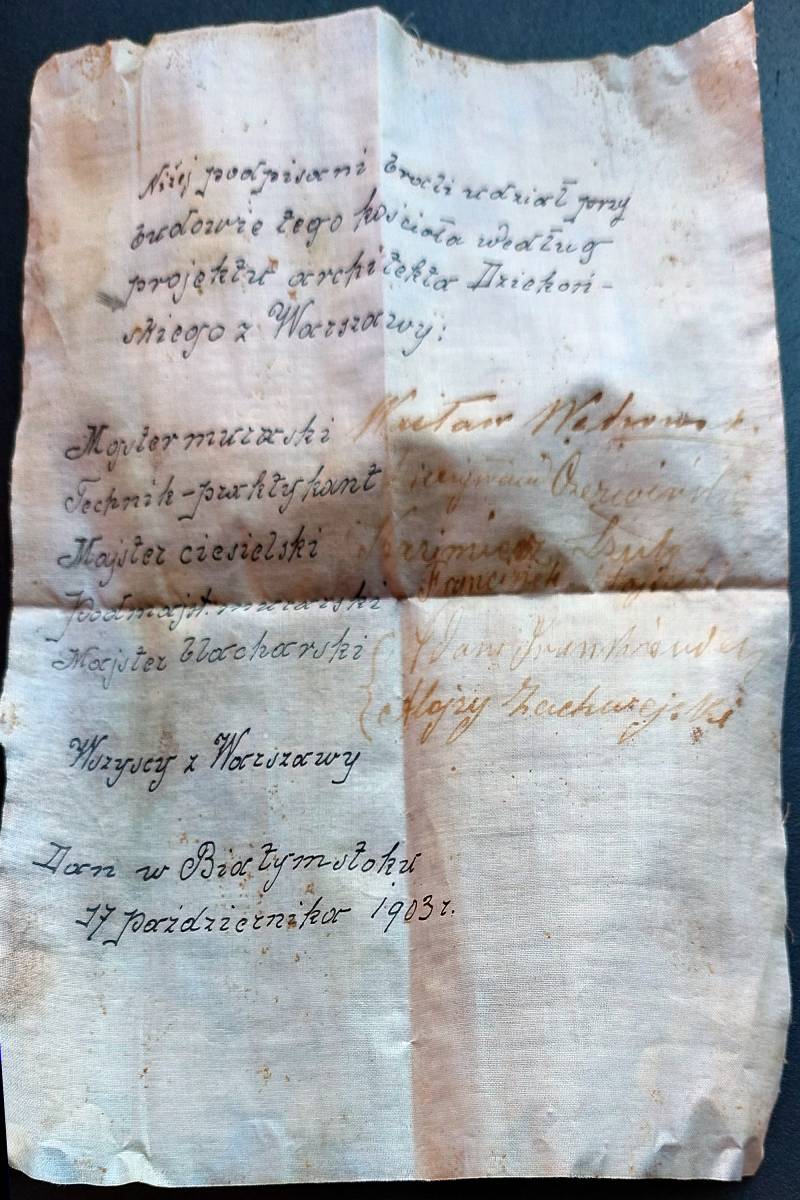 Niżej podpisani brali udział przy
budowie tego kościoła według
projektu architekta Dziekoń-
skiego z Warszawy:
Majster murarski Wacław
Technik-praktykant Czerwiński
Majster ciesielski Kazimierz Szulc
Podmajst. murarski Franciszek
Majster blacharski
Alojzy Zacharejski
Wszyscy z Warszawy
Dan w Białymstoku
17 października 1903 r.